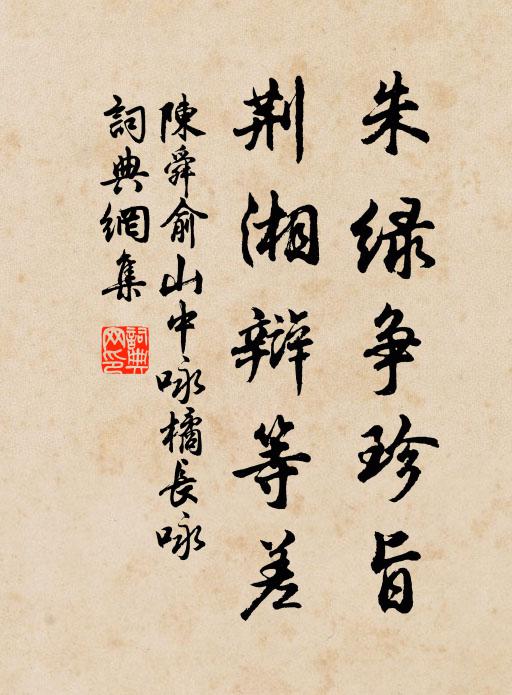 朱绿争珍旨
荆湘辩等差
陳舜俞山中咏橘長咏
詞典網集
詞典网印